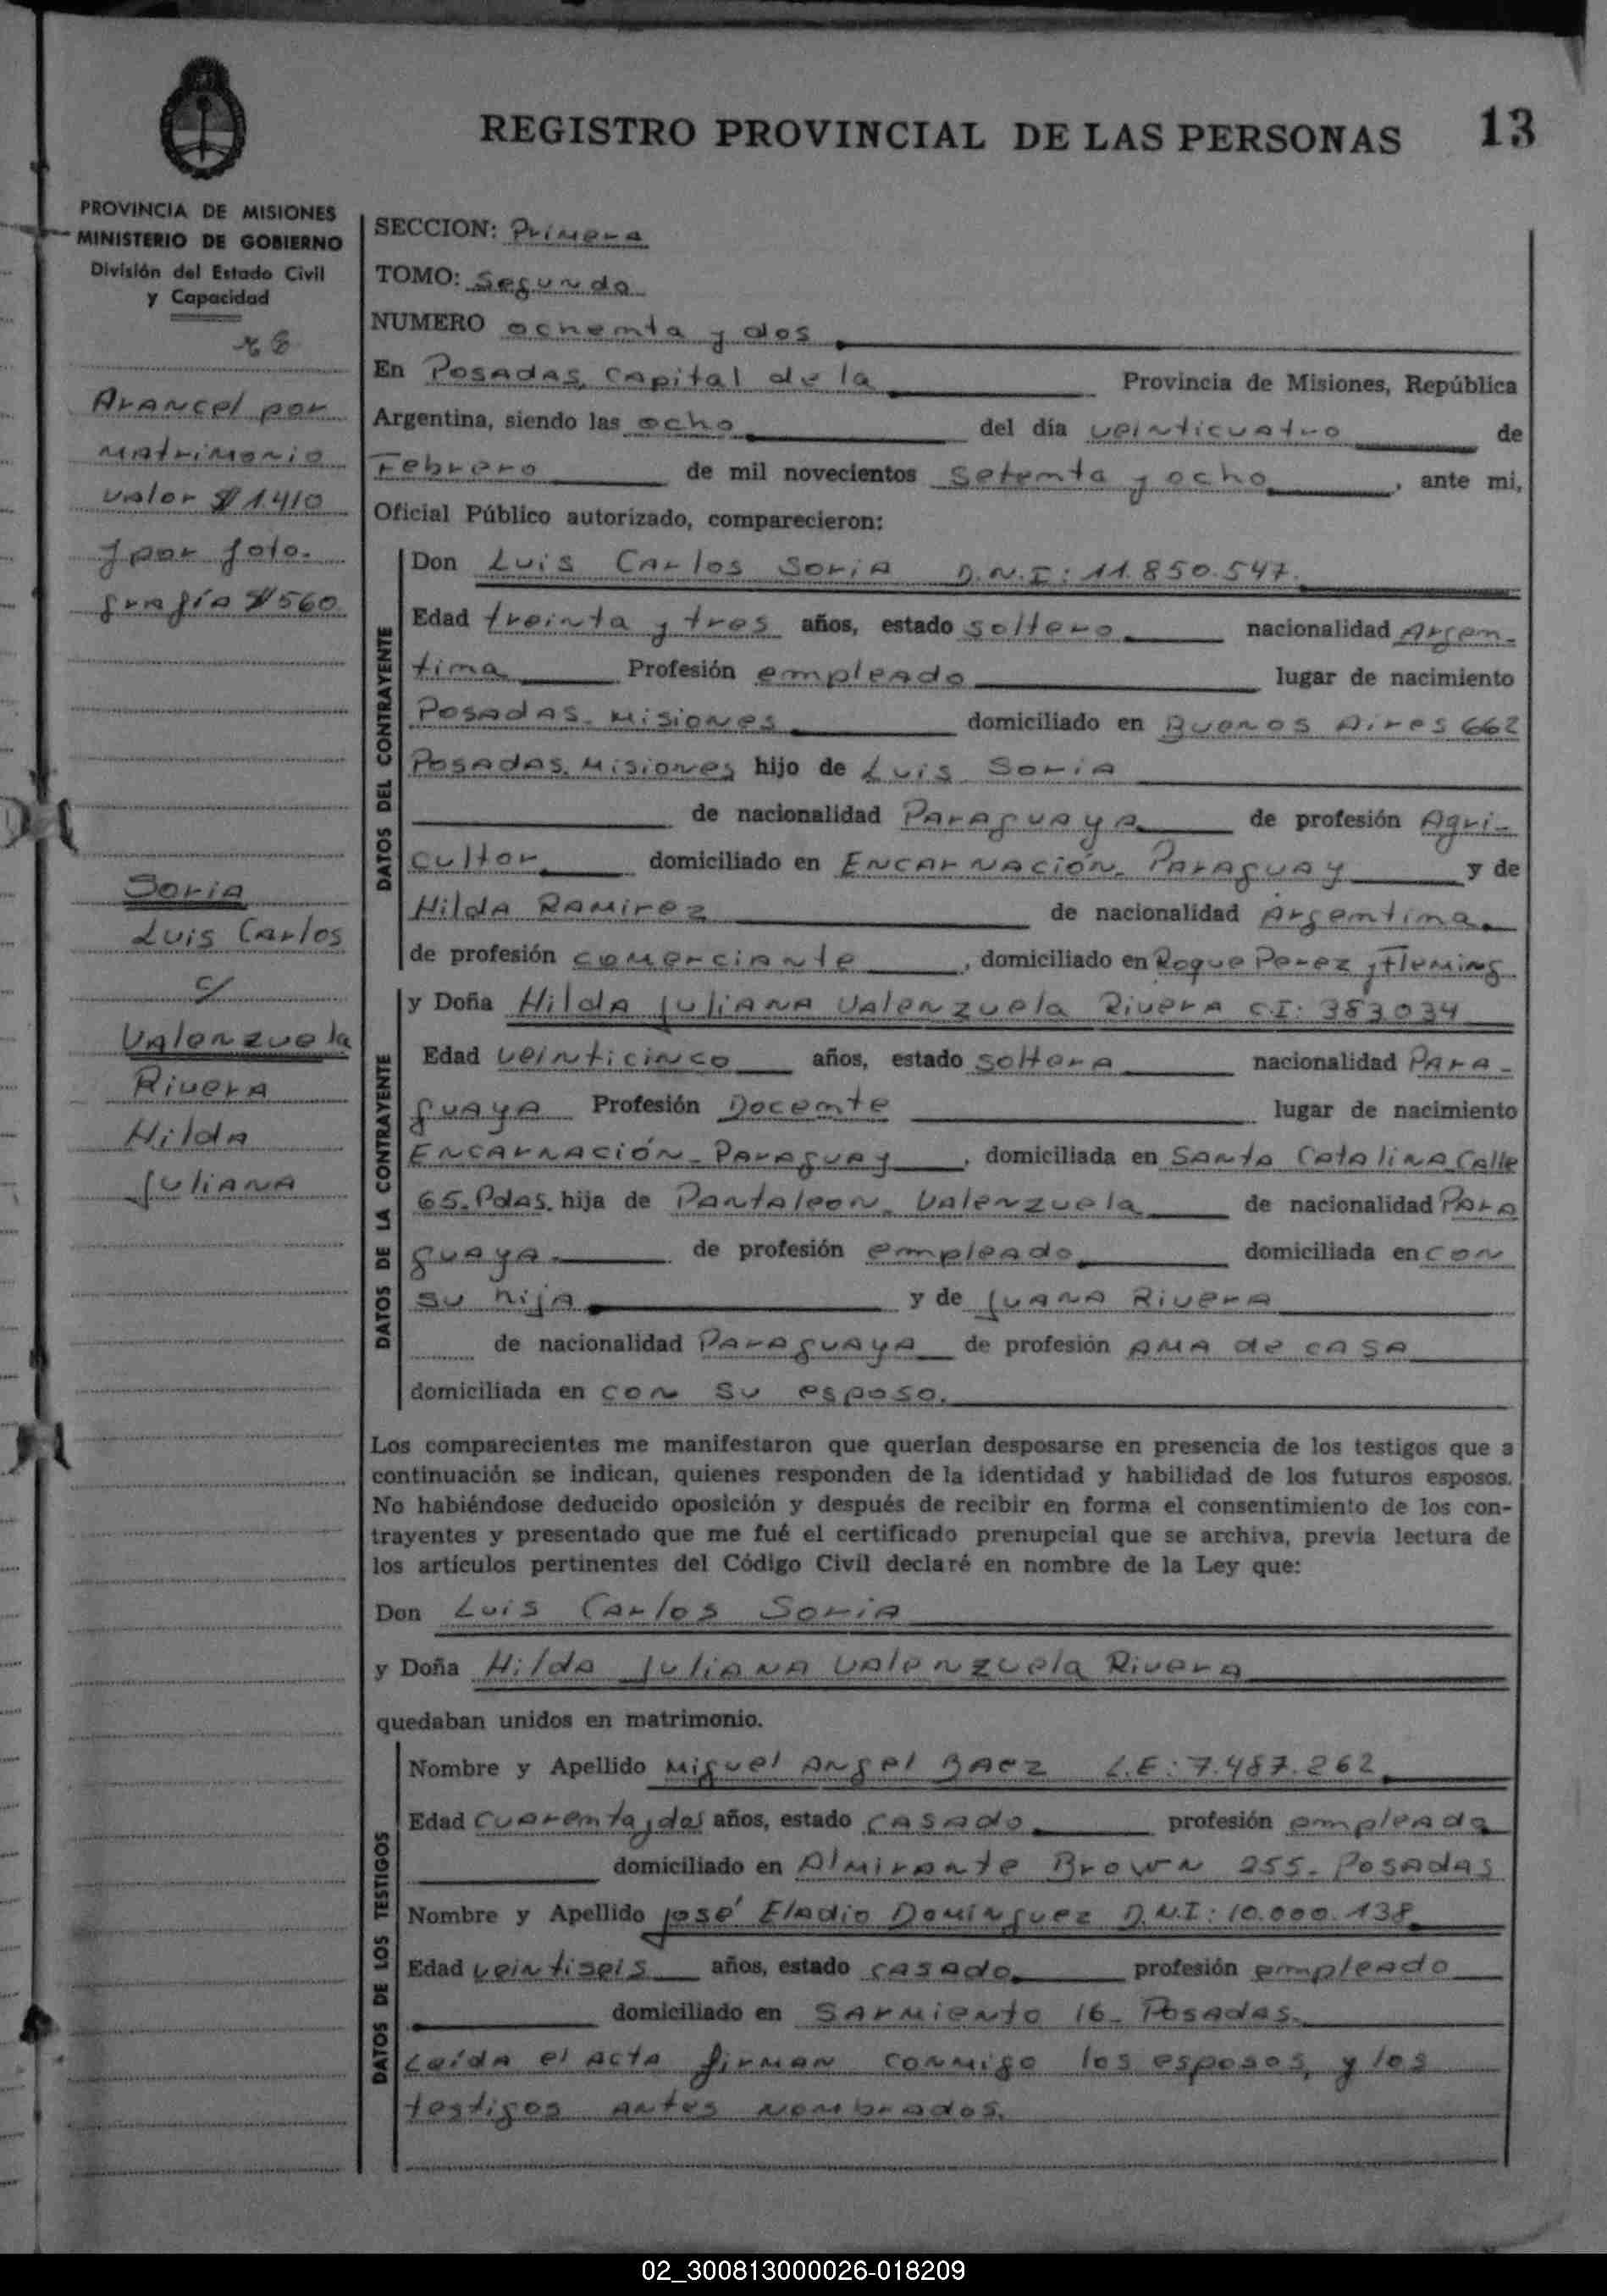 REGISTRO PROVINCIAL DE LAS PERSONAS 13
PROVINCIA DE MISIONES
MINISTERIO DE GOBIERNO
División del Estado Civil
y Capacidad
Arancel por
matrimonio
valor $ 1.410
y por foto-
grafía $ 560
Soria
Luis Carlos
c/
Valenzuela
Rivera
Hilda
Juliana
SECCION: Primera
TOMO: Segundo
NUMERO ochenta y dos
En Posadas, capital de la Provincia de Misiones, República
Argentina, siendo las ocho del día veinticuatro de
Febrero de mil novecientos setenta y ocho, ante mi,
Oficial Público autorizado, comparecieron:
DATOS DEL CONTRAYENTE
Don Luis Carlos Soria D.N.I: 11.850.547.
Edad treinta y tres años, estado soltero nacionalidad Argen-
tina Profesión empleado lugar de nacimiento
Posadas- Misiones domiciliado en Buenos Aires 662
Posadas. Misiones hijo de Luis Soria
de nacionalidad Paraguaya de profesión Agri-
cultor domiciliado en Encarnación- Paraguay y de
Hilda Ramirez de nacionalidad Argentina
de profesión comerciante, domiciliado en Roque Perez y Fleming
DATOS DE LA CONTRAYENTE
y Doña Hilda Juliana Valenzuela Rivera C.I: 383034
Edad veinticinco años, estado soltera nacionalidad Para-
guaya Profesión Docente lugar de nacimiento
Encarnación- Paraguay, domiciliada en Santa Catalina Calle
65. Pdas. hija de Pantaleon Valenzuela de nacionalidad Para
guaya de profesión empleado domiciliada en con
su hija y de Juana Rivera
de nacionalidad Paraguaya de profesión ama de casa
domiciliada en con su esposo.
Los comparecientes me manifestaron que querían desposarse en presencia de los testigos que a
continuación se indican, quienes responden de la identidad y habilidad de los futuros esposos.
No habiéndose deducido oposición y después de recibir en forma el consentimiento de los con-
trayentes y presentado que me fué el certificado prenupcial que se archiva, previa lectura de
los artículos pertinentes del Código Civil declaré en nombre de la Ley que:
Don Luis Carlos Soria
y Doña Hilda Juliana Valenzuela Rivera
quedaban unidos en matrimonio.
DATOS DE LOS TESTIGOS
Nombre y Apellido Miguel Angel Baez L.E: 7.487.262
Edad cuarenta y dos años, estado casado profesión empleado
domiciliado en Almirante Brown 255- Posadas
Nombre y Apellido José Eladio Domínguez D.N.I: 10.000.138
Edad veintiseis años, estado casado profesión empleado
domiciliado en Sarmiento 16- Posadas.
Leída el acta firman conmigo los esposos, y los
testigos antes nombrados.
02_300813000026-018209